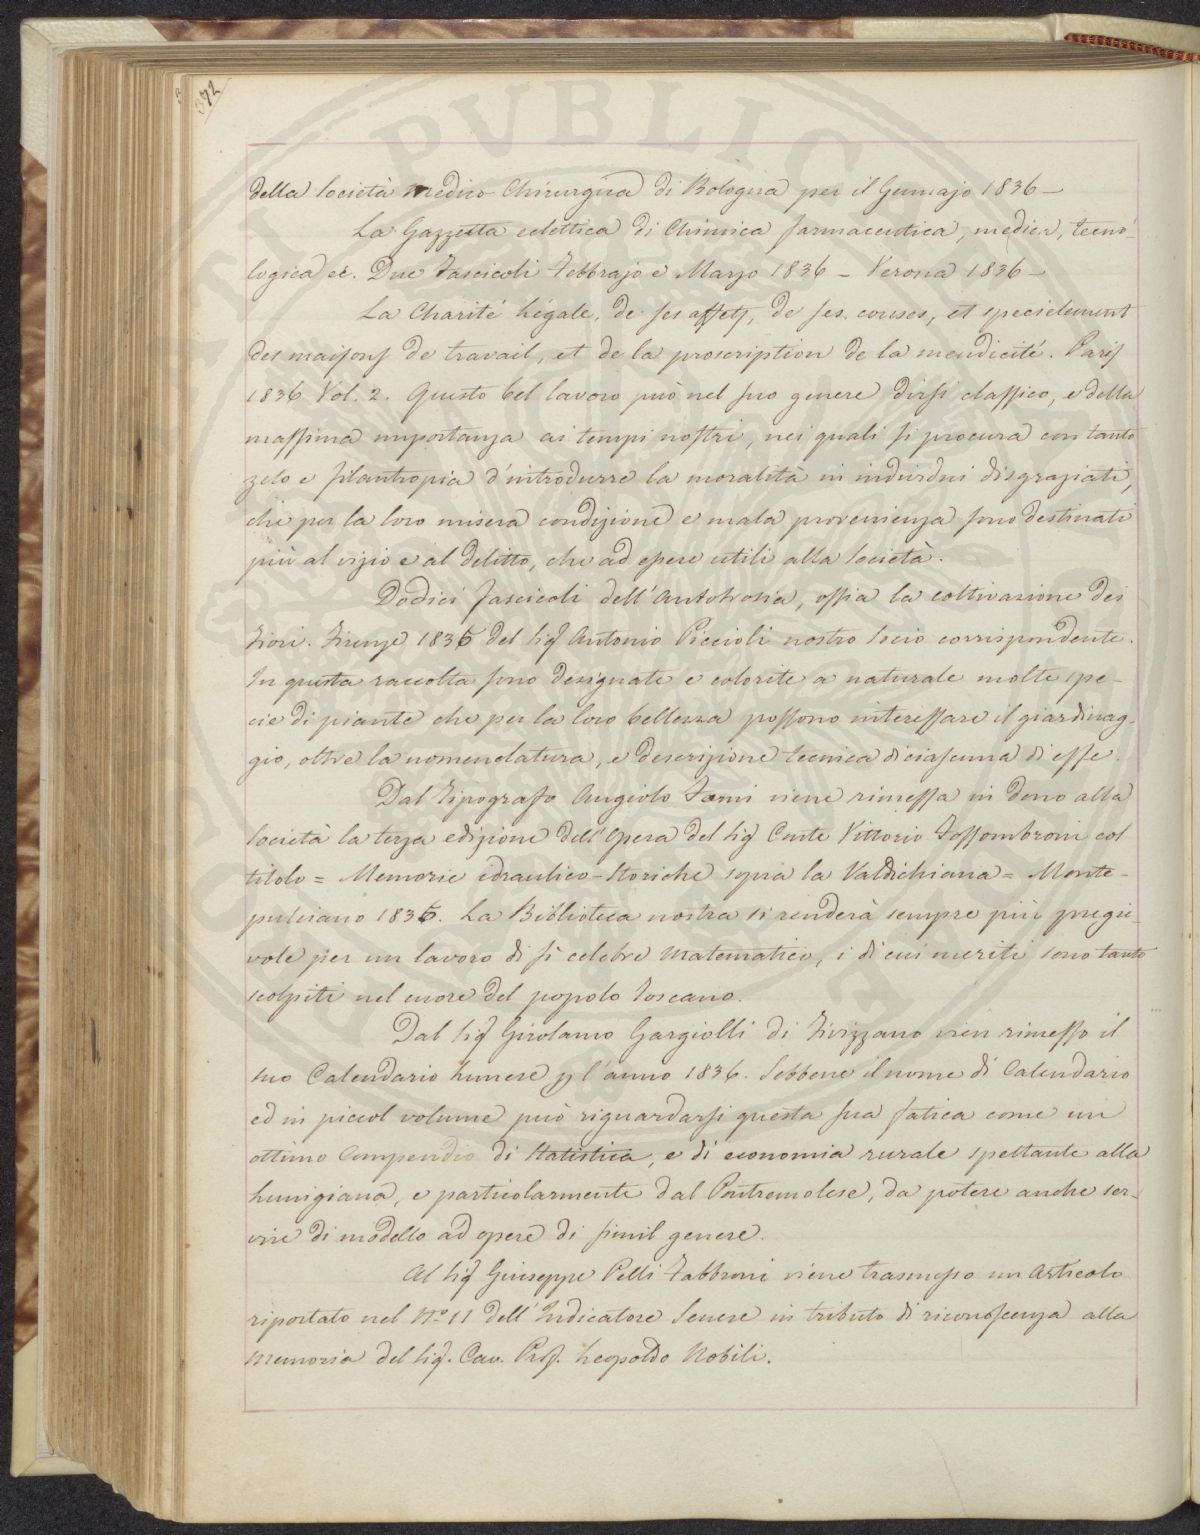 372
della Società Medico Chirurgica di Bologna per il Gennajo 1836 —
La Gazzetta eclettica di Chimica farmaceutica, medica, tecno-
logica ec. Due Fascicoli Febbrajo e Marzo 1836 — Verona 1836 —
La Charité Légale, de ses effets, de ses causes, et specialement
des maisons de travail, et de la proscription de la mendicité. Paris
1836 Vol. 2. Questo bel lavoro può nel suo genere dirsi classico, e della
massima importanza ai tempi nostri, nei quali si procura con tanto
zelo e filantropia d'introdurre la moralità in individui disgraziati,
che per la loro misera condizione e mala provenienza sono destinati
più al vizio e al delitto, che ad opere utili alla Società.
Dodici fascicoli dell'Antotrofia, ossia la coltivazione dei
Fiori. Firenze 1836 del Sig Antonio Piccioli nostro Socio corrispondente.
In questa raccolta sono designate e colorite a naturale molte spe-
cie di piante che per la loro bellezza possono interessare il giardinag-
gio, oltre la nomenclatura, e descrizione tecnica di ciascuna di esse.
Dal Tipografo Angiolo Fumi viene rimessa in dono alla
Società la terza edizione dell'Opera del Sig Conte Vittorio Fossombroni col
titolo = Memorie idraulico-Storiche sopra la Valdichiana = Monte-
pulciano 1835. La Biblioteca nostra si renderà sempre più pregie-
vole per un lavoro di sì celebre Matematico, i di cui meriti sono tanto
scolpiti nel cuore del popolo Toscano.
Dal Sig Girolamo Gargiolli di Fivizzano vien rimesso il
suo Calendario Lunese p l'anno 1836. Sebbene il nome di Calendario
ed in piccol volume può riguardarsi questa sua fatica come un
ottimo Compendio di Statistica, e di economia rurale spettante alla
Lunigiana, e particolarmente dal Pontremolese, da potere anche ser-
vire di modello ad opere di simil genere.
Al Sig Giuseppe Pelli Fabbroni viene trasmesso un Articolo
riportato nel N.o 11 dell'Indicatore Senese in tributo di riconoscenza alla
Memoria del Sig. Cav. Prof. Leopoldo Nobili.